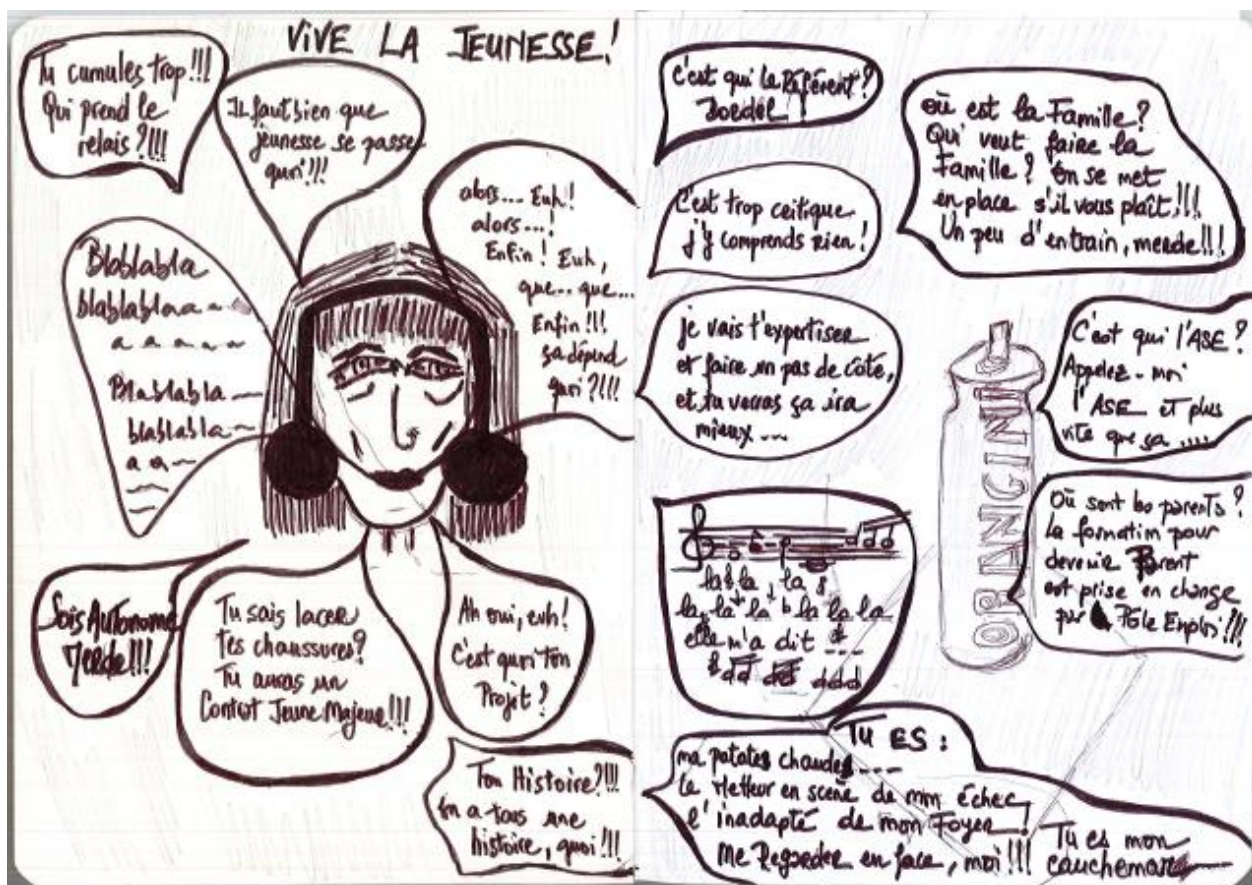 VIVE LA JEUNESSE!
Tu cumules trop!!!
Qui prend le
relais?!!!
Il faut bien que
jeunesse se passe
quoi!!!
alors... Euh!
alors...!
Enfin! Euh,
que... que...
Enfin!!!
ça dépend
quoi?!!!
Blablabla
blablablaa
a a a a a
Blablabla
blablabla
a a
Sois Autonome
Merde!!!
Tu sais lacer
tes chaussures?
Tu auras un
Contrat Jeune Majeur!!!
Ah oui, euh!
C'est quoi ton
Projet?
Ton Histoire?!!!
On a tous une
histoire, quoi!!!
C'est qui le Référent?
C'est trop critique
j'y comprends rien!
je vais t'expertiser
et faire un pas de côté,
et tu verras ça ira
mieux...
la la la
la la la la la la
elle m'a dit ...
où est la Famille?
Qui veut faire la
Famille? On se met
en place s'il vous plaît!!!
Un peu d'entrain, merde!!!
C'est qui l'ASE?
Appelez-moi
l'ASE et plus
vite que ça ....
ORANGINA
Où sont les parents?
La formation pour
devenir Parent
est prise en charge
par Pôle Emploi!!!
TU ES:
ma patate chaude ----
Le Metteur en scène de mon échec
l'inadapté de mon Foyer!
Me Regarder en face, moi!!!
Tu es mon
cauchemar